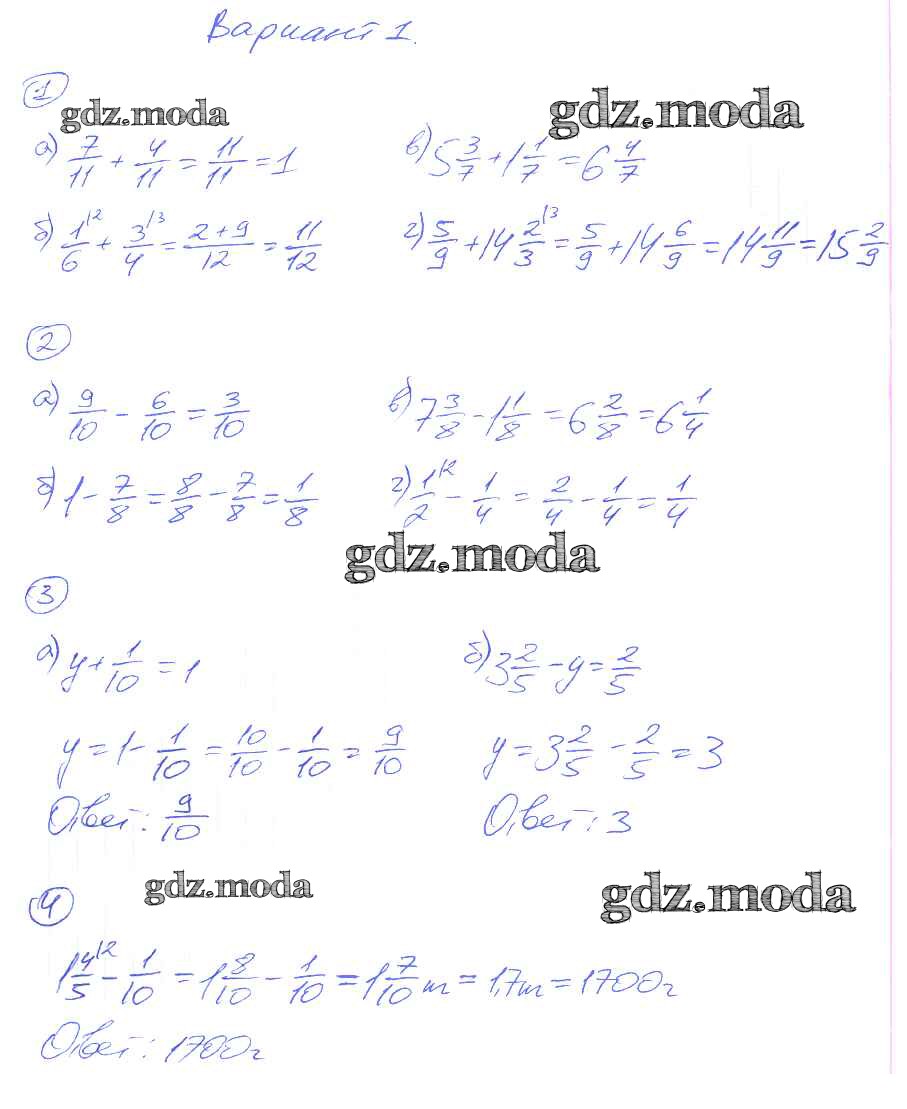 Вариант 1.
1
gdz.moda gdz.moda
а) 7/11 + 4/11 = 11/11 = 1 в) 5 3/7 + 1 1/7 = 6 4/7
б) 1/6 |2 + 3/4 |3 = 2+9/12 = 11/12 г) 5/9 + 14 2/3 |3 = 5/9 + 14 6/9 = 14 11/9 = 15 2/9
2
а) 9/10 - 6/10 = 3/10 в) 7 3/8 - 1 1/8 = 6 2/8 = 6 1/4
б) 1 - 7/8 = 8/8 - 7/8 = 1/8 г) 1/2 |2 - 1/4 = 2/4 - 1/4 = 1/4
gdz.moda
3
а) y + 1/10 = 1 б) 3 2/5 - y = 2/5
y = 1 - 1/10 = 10/10 - 1/10 = 9/10 y = 3 2/5 - 2/5 = 3
Ответ: 9/10 Ответ: 3
gdz.moda gdz.moda
4
1 4/5 |2 - 1/10 = 1 8/10 - 1/10 = 1 7/10 т = 1,7т = 1700г
Ответ: 1700г